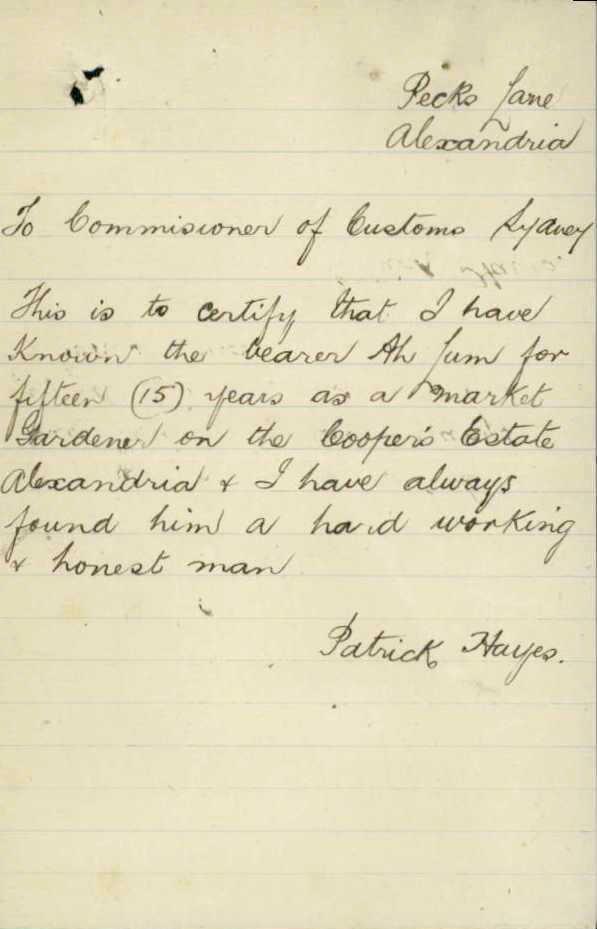 Pecks Lane
Alexandria
To Commisioner of Customs Sydney
This is to certify that I have
Known the bearer Ah Jum for
fifteen (15) years as a market
Gardener on the Cooper's Estate
Alexandria & I have always
found him a hard working
& honest man
Patrick Hayes.